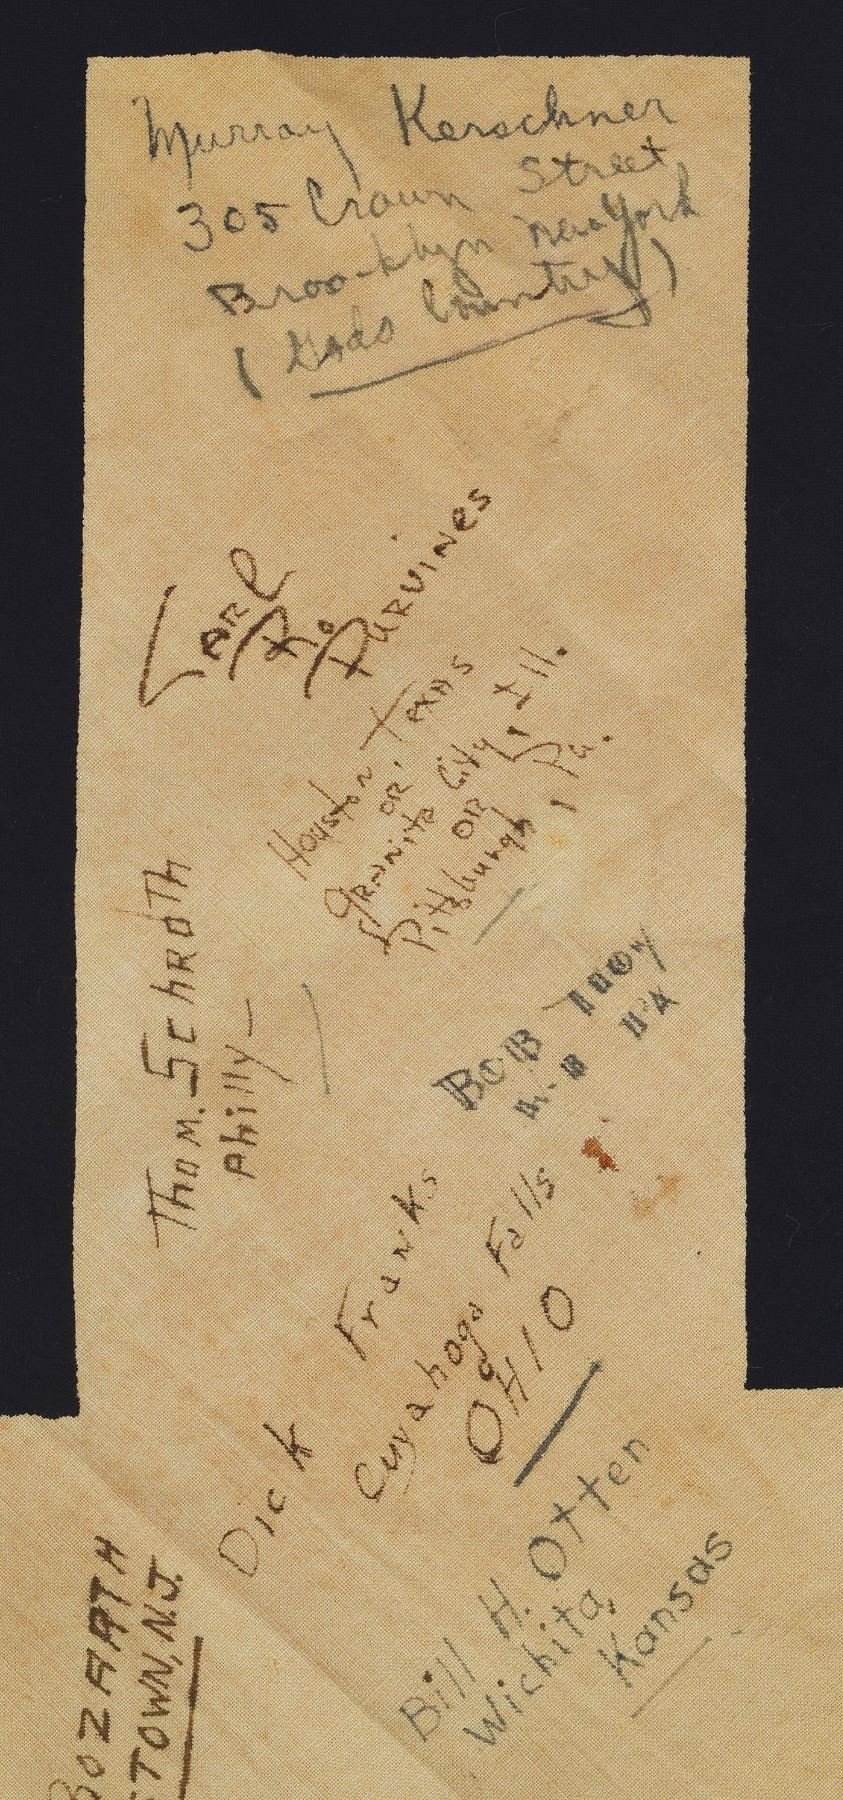 Murray Kerschner
305 Crown Street
Brooklyn New York
(Gods Country)
Earl R. Purvines
Houston, Texas
OR
Grannite City, Ill.
OR
Pittsburgh, Pa.
Thom. Schroth
Philly
BOB
Dick Franks
Cuyahoga Falls
OHIO
Bill H. Otten
Wichita,
Kansas
BOZARTH
STOWN, N.J.